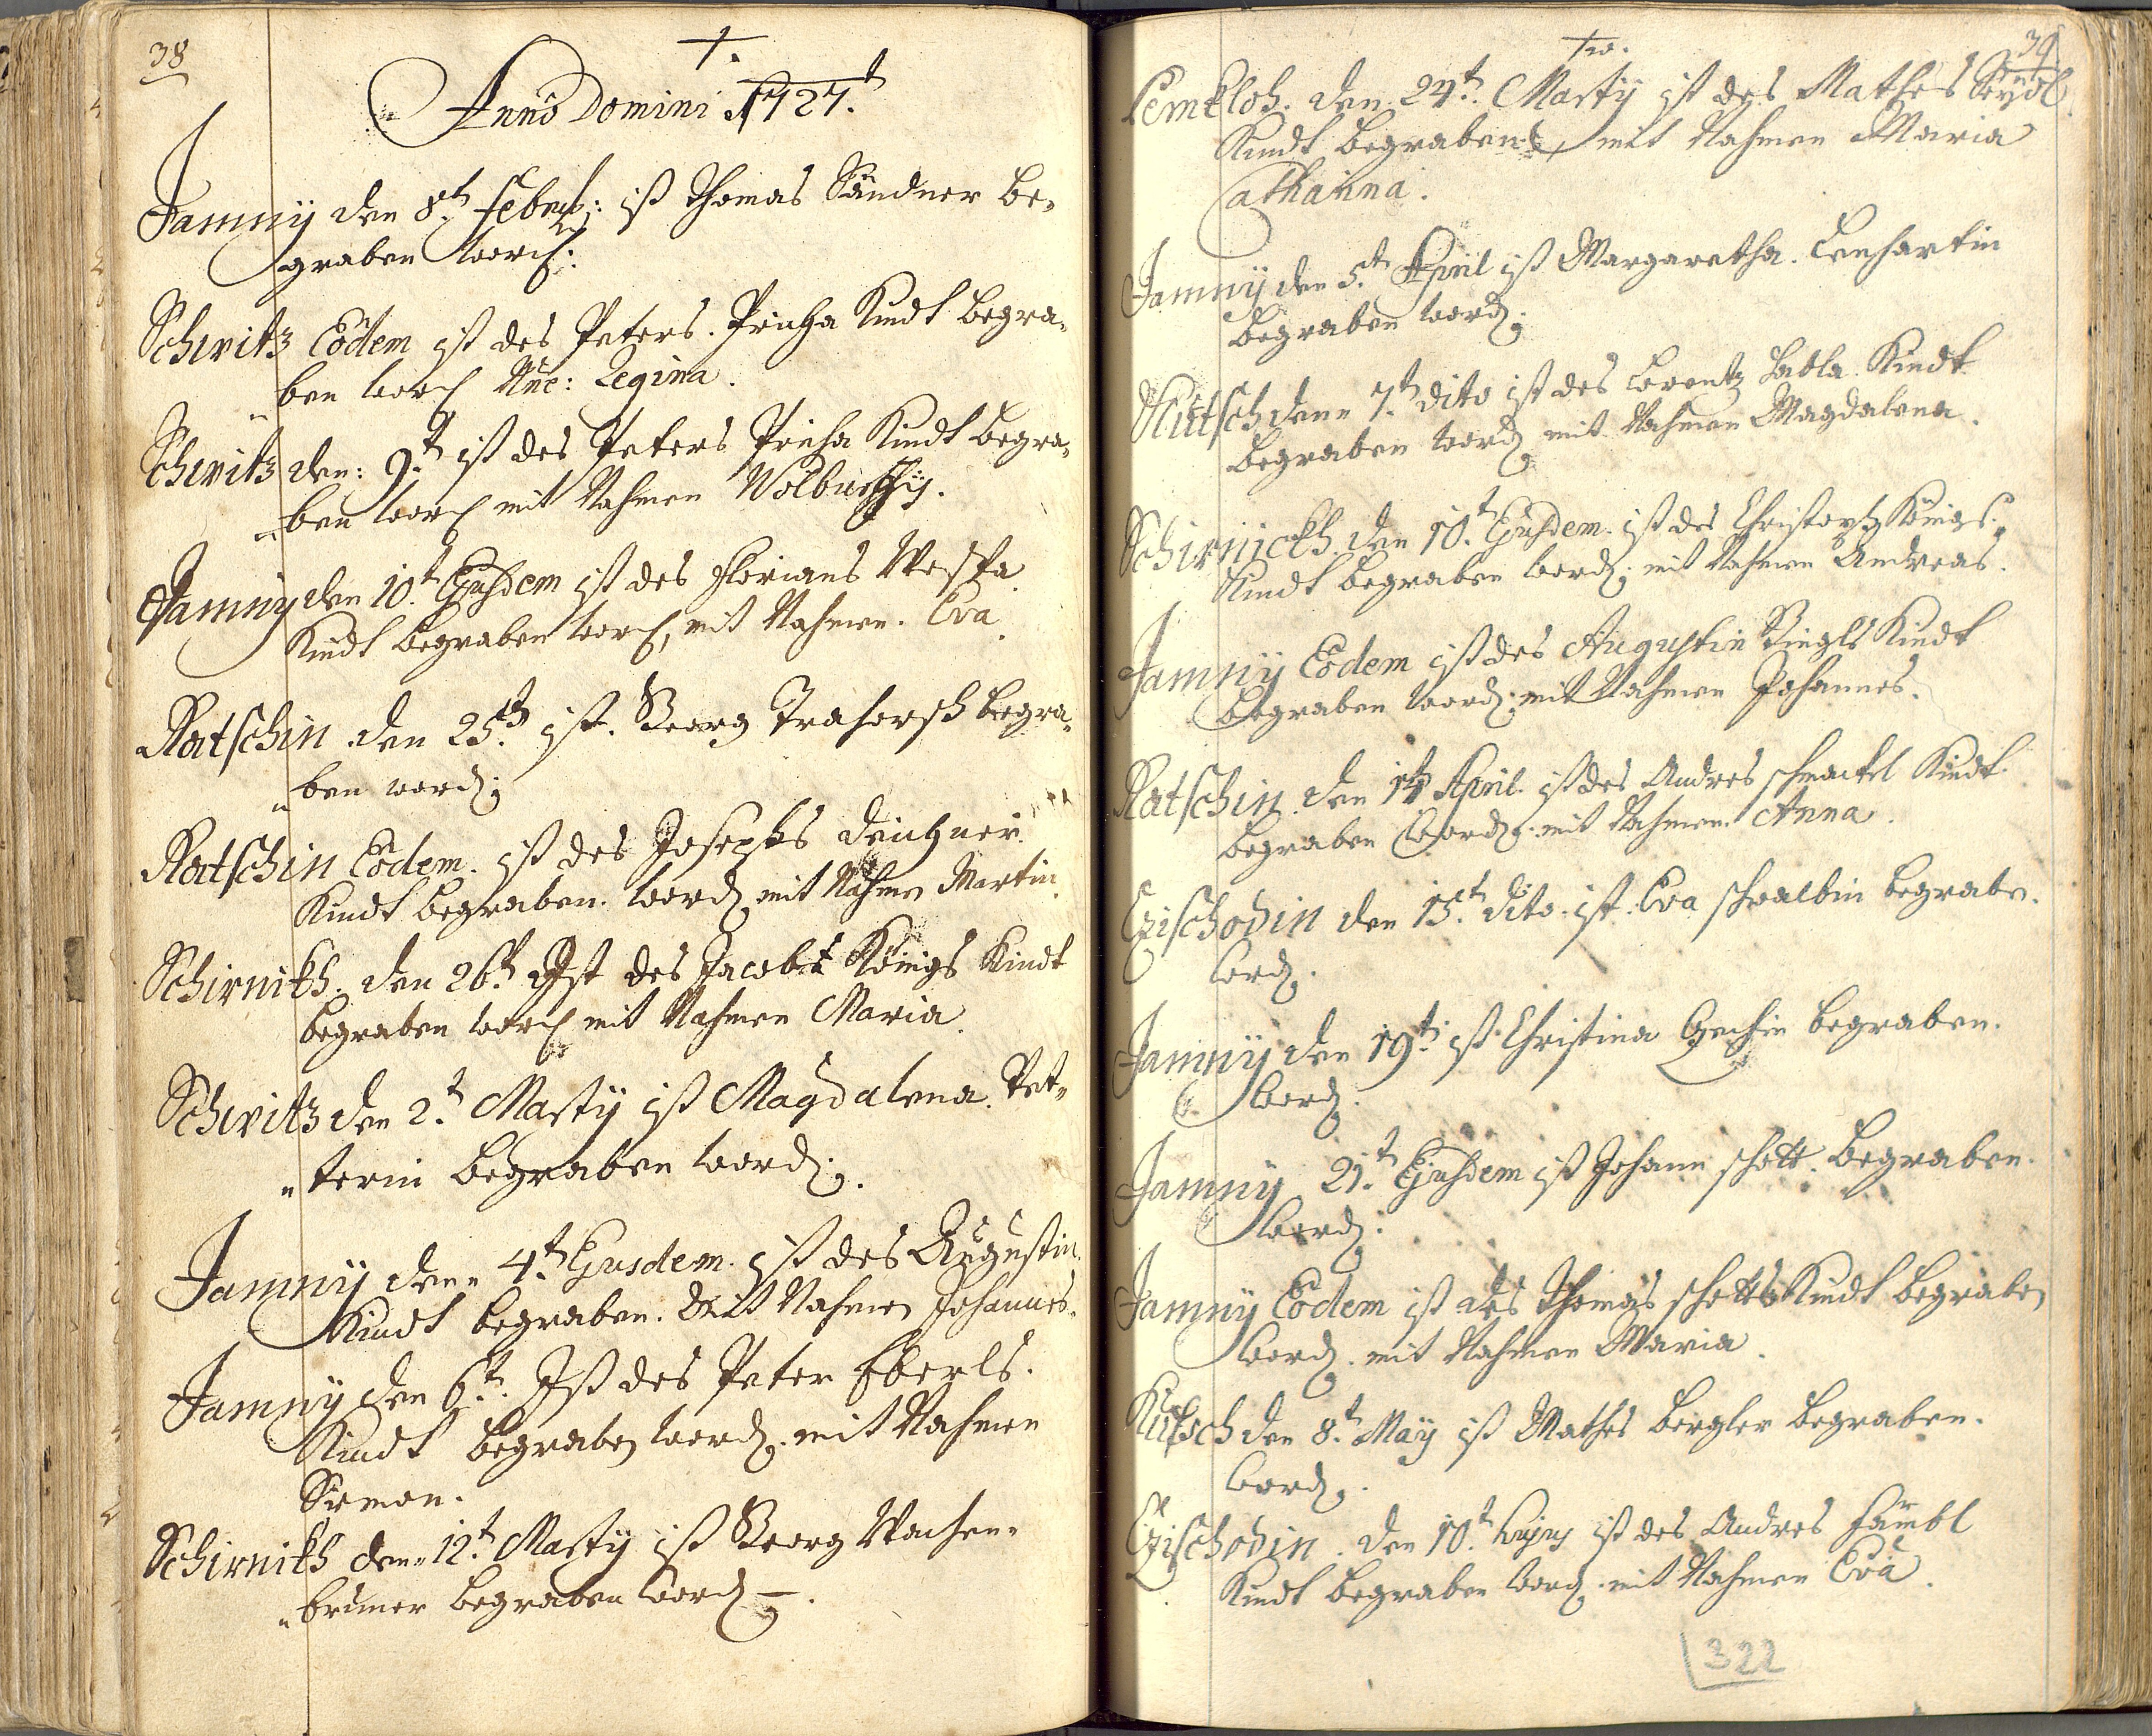 38
†.
Anno Domini 1727.t
Jamnÿ den 8t. Febru: ist Thomas Sandner be„
graben word:
Schwitz Eodem ist des Peters. Pricha Kindt begra„
„ben word Nñe: Regina.
Schwitz den: 9.t ist des Peters Pricha Kindt begra„
„ben word mit Nahmen Wolburgÿ.
Jamnÿ den 10.t Ejusdem ist des Florians Wespa
Kindt begraben word, mit Nahmen. Eva.
Ratschin den 25.t ist. Georg begra„
„ben word:
Ratschin Eodem. ist des Josephs Deichner.
Kindt begraben. word mit Nahmen Martin.
Schirnikh. den 26.t Ist des Jacobs Königs Kindt
begraben word mit Nahmen Maria.
Schwitz den 2.t Martÿ ist Magdalena. Pet„
„terin begraben word:.
Jamnÿ den„ 4.t Ejusdem. ist des Augustin.
Kindt begraben. Mit Nahmen Johannes.
Jamnÿ den 6.t. Ist des Peter Eberls.
Kindt begraben word. mit Nahmen
Simon.
Schirnikh den„ 12.t Martÿ ist Georg Wachen„
„bruner begraben word –.
39
†
Lemkloh. den 24.t. Martÿ ist des Mathes Seydl
Kindt begraben mit Nahmen Maria
Catharina.
Jamnÿ den 5.t April ist Margaretha. Lenhartin
begraben word:
Kütsch den„ 7.t dito ist des Lorentz Kindt
begraben word mit Nahmen Magdalena.
Schirnickh den 10.t Ejusdem. ist des Christoph Königs.
Kindt begraben word: mit Nahmen Andreas.
Jamnÿ Eodem ist des Augustin Kindt
begraben word: mit Nahmen Johannes.
Ratschin. den 14 April. ist des Andres Kindt.
begraben word. mit Nahmen Anna.
den 15.t dito. ist. Eva schwalbin begraben.
word.
Jamnÿ den 19.t ist Christina begraben.
word.
Jamnÿ 21.t Ejusdem ist Johann schott. begraben.
word:
Jamnÿ Eodem ist des Thomas schotts Kindt begraben
word. mit Nahmen Maria.
Kütsch den 8.t Maÿ ist Mathes bergler begraben.
word.
den 10.t hujus ist des Andres
Kindt begraben word. mit Nahmen Eva.
322